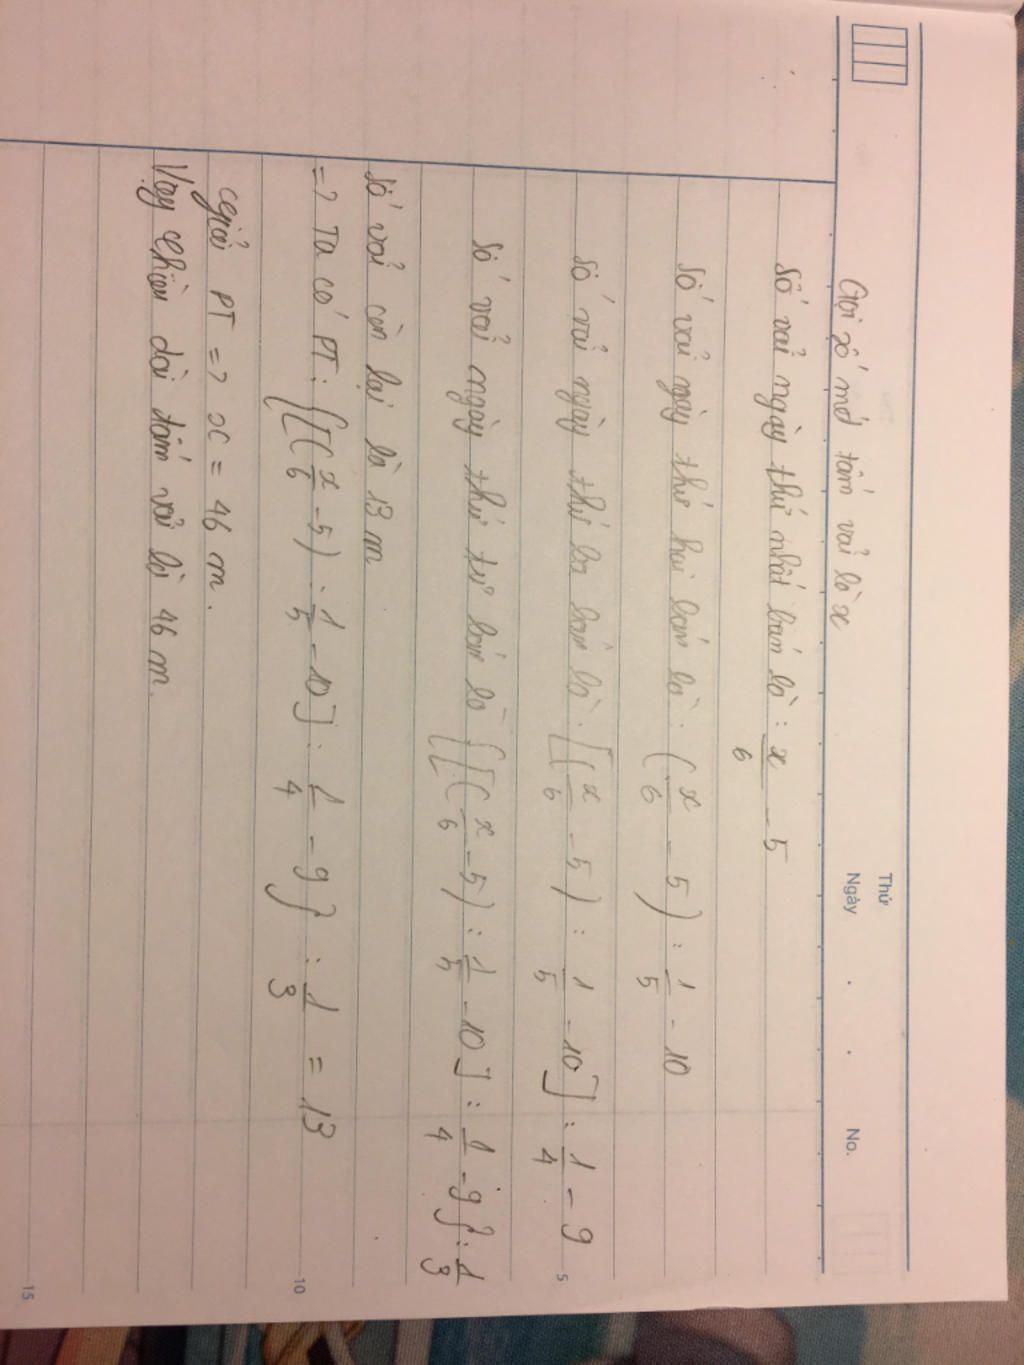 Thứ
Ngày . . No.
Gọi số mở tấm vải là x
Số vải ngày thứ nhất bán là : x/6 - 5
Số vải ngày thứ hai bán là : (x/6 - 5) : 1/5 - 10
Số vải ngày thứ ba bán là : [(x/6 - 5) : 1/5 - 10] : 1/4 - 9
Số vải ngày thứ tư bán là {[(x/6 - 5) : 1/5 - 10] : 1/4 - 9} : 1/3
Số vải còn lại là 13 m
=> Ta có PT : {[(x/6 - 5) : 1/5 - 10] : 1/4 - 9} : 1/3 = 13
Giải PT => x = 46 m.
Vậy chiều dài tấm vải là 46 m.
5
10
15